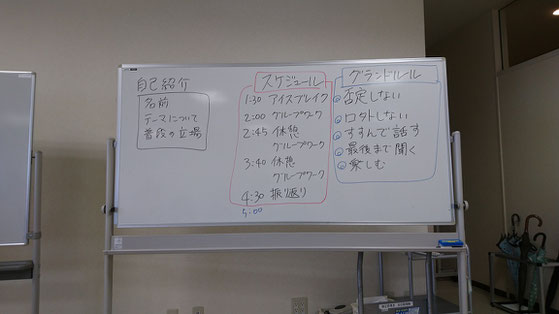 自己紹介
名前
テーマについて
普段の立場
スケジュール
1:30 アイスブレイク
2:00 グループワーク
2:45 休憩
グループワーク
3:40 休憩
グループワーク
4:30 振り返り
5:00
グランドルール
否定しない
口外しない
すすんで話す
最後まで聞く
楽しむ